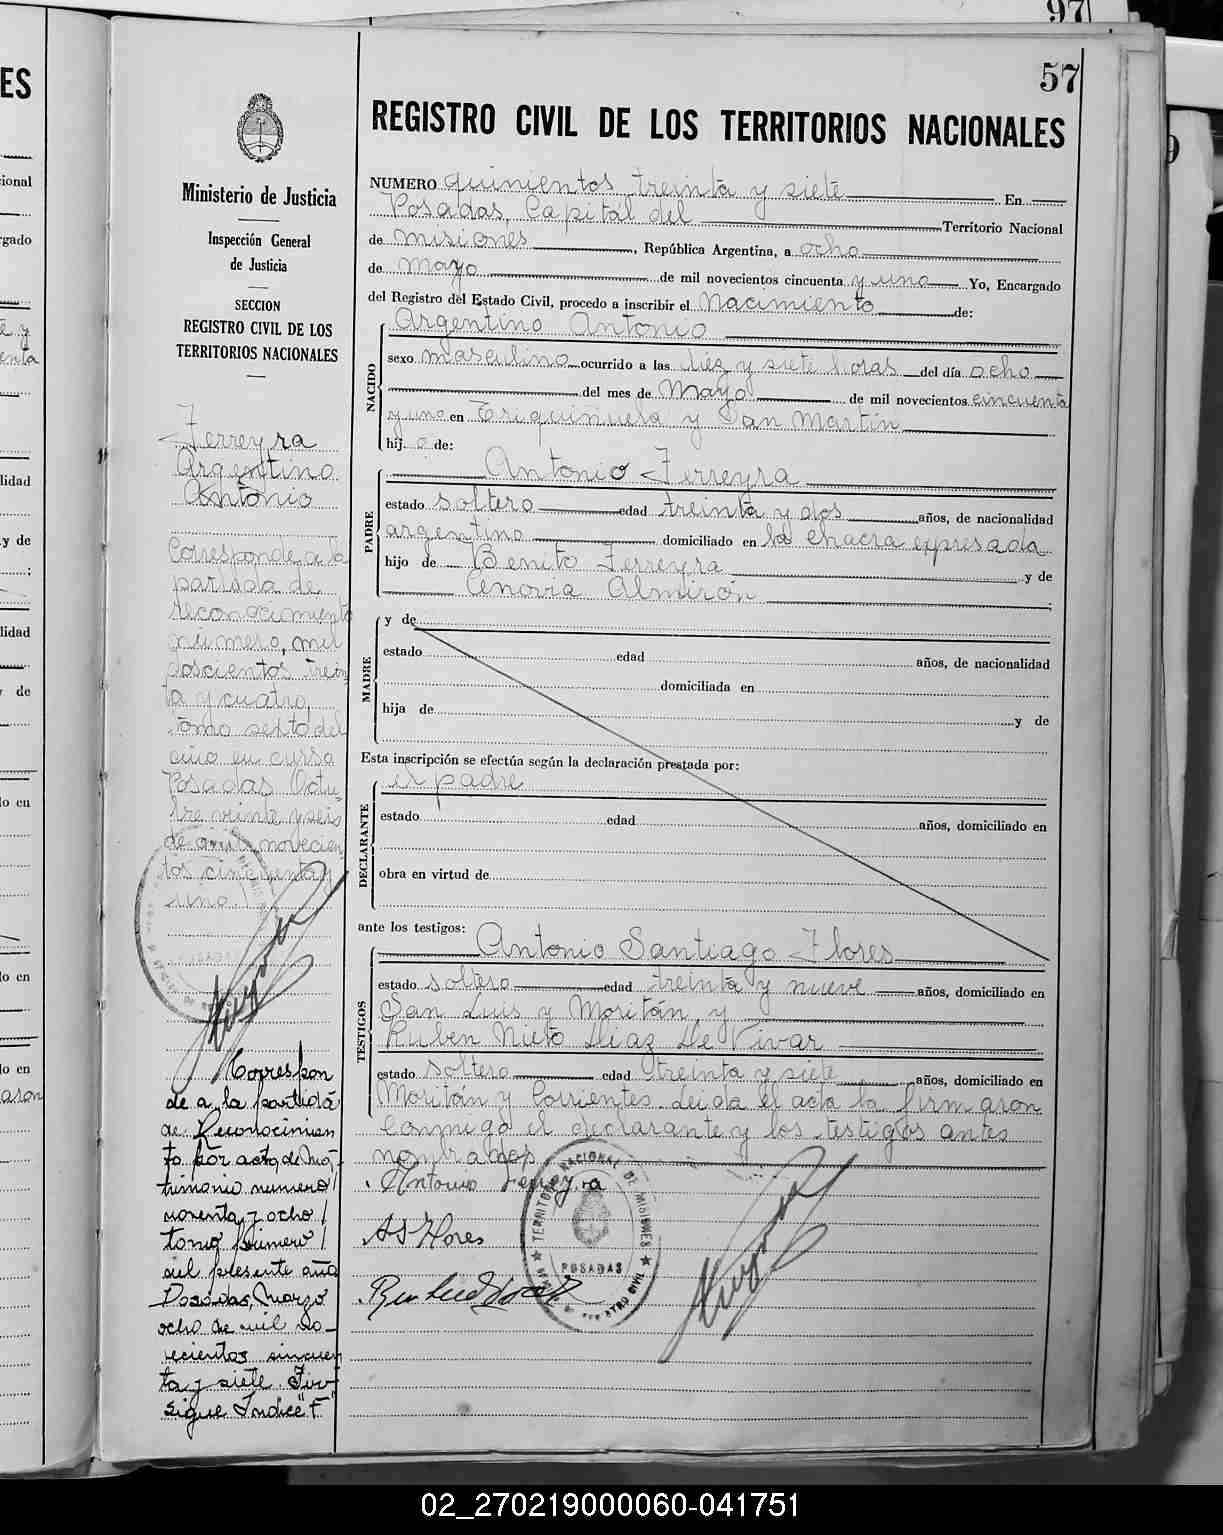 97
57
REGISTRO CIVIL DE LOS TERRITORIOS NACIONALES
Ministerio de Justicia
Inspección General
de Justicia
SECCION
REGISTRO CIVIL DE LOS
TERRITORIOS NACIONALES
Ferreyra
Argentino
Antonio
Corresponde a la
partida de
reconocimiento
número, mil
doscientos trein
ta y cuatro,
tomo sexto del
año en curso
Posadas Octu-
bre veinte y seis
de mil novecien
tos cincuenta y
uno.
Correspon
de a la partida
de Reconocimien
to por acta de Ma-
trimonio numero
noventa y ocho /
tomo primero /
del presente año
Posadas, Marzo
ocho de mil no-
vecientos cincuen
ta y siete.
sigue Indice "F"
NUMERO quinientos treinta y siete En
Posadas, Capital del Territorio Nacional
de Misiones, República Argentina, a ocho
de Mayo de mil novecientos cincuenta y uno Yo, Encargado
del Registro del Estado Civil, procedo a inscribir el Nacimiento de:
NACIDO
Argentino Antonio
sexo masculino ocurrido a las diez y siete horas del día ocho
del mes de Mayo de mil novecientos cincuenta
y uno en Triquiñuela y San Martín
hij o de:
PADRE
Antonio Ferreyra
estado soltero edad treinta y dos años, de nacionalidad
argentino domiciliado en la chacra expresada
hijo de Benito Ferreyra y de
Cenovia Almirón ;
MADRE
y de
estado edad años, de nacionalidad
domiciliada en
hija de y de
Esta inscripción se efectúa según la declaración prestada por:
DECLARANTE
el padre
estado edad años, domiciliado en
obra en virtud de
ante los testigos:
TESTIGOS
Antonio Santiago Flores
estado soltero edad treinta y nueve años, domiciliado en
San Luis y Moritán y
Ruben Nieto Diaz De Vivar
estado soltero edad treinta y siete años, domiciliado en
Moritán y Corrientes. Leida el acta la firmaron
conmigo el declarante y los testigos antes
nombrados
Antonio Ferreyra
AS Flores
TERRITORIO NACIONAL DE MISIONES
POSADAS
REGISTRO CIVIL
02_270219000060-041751